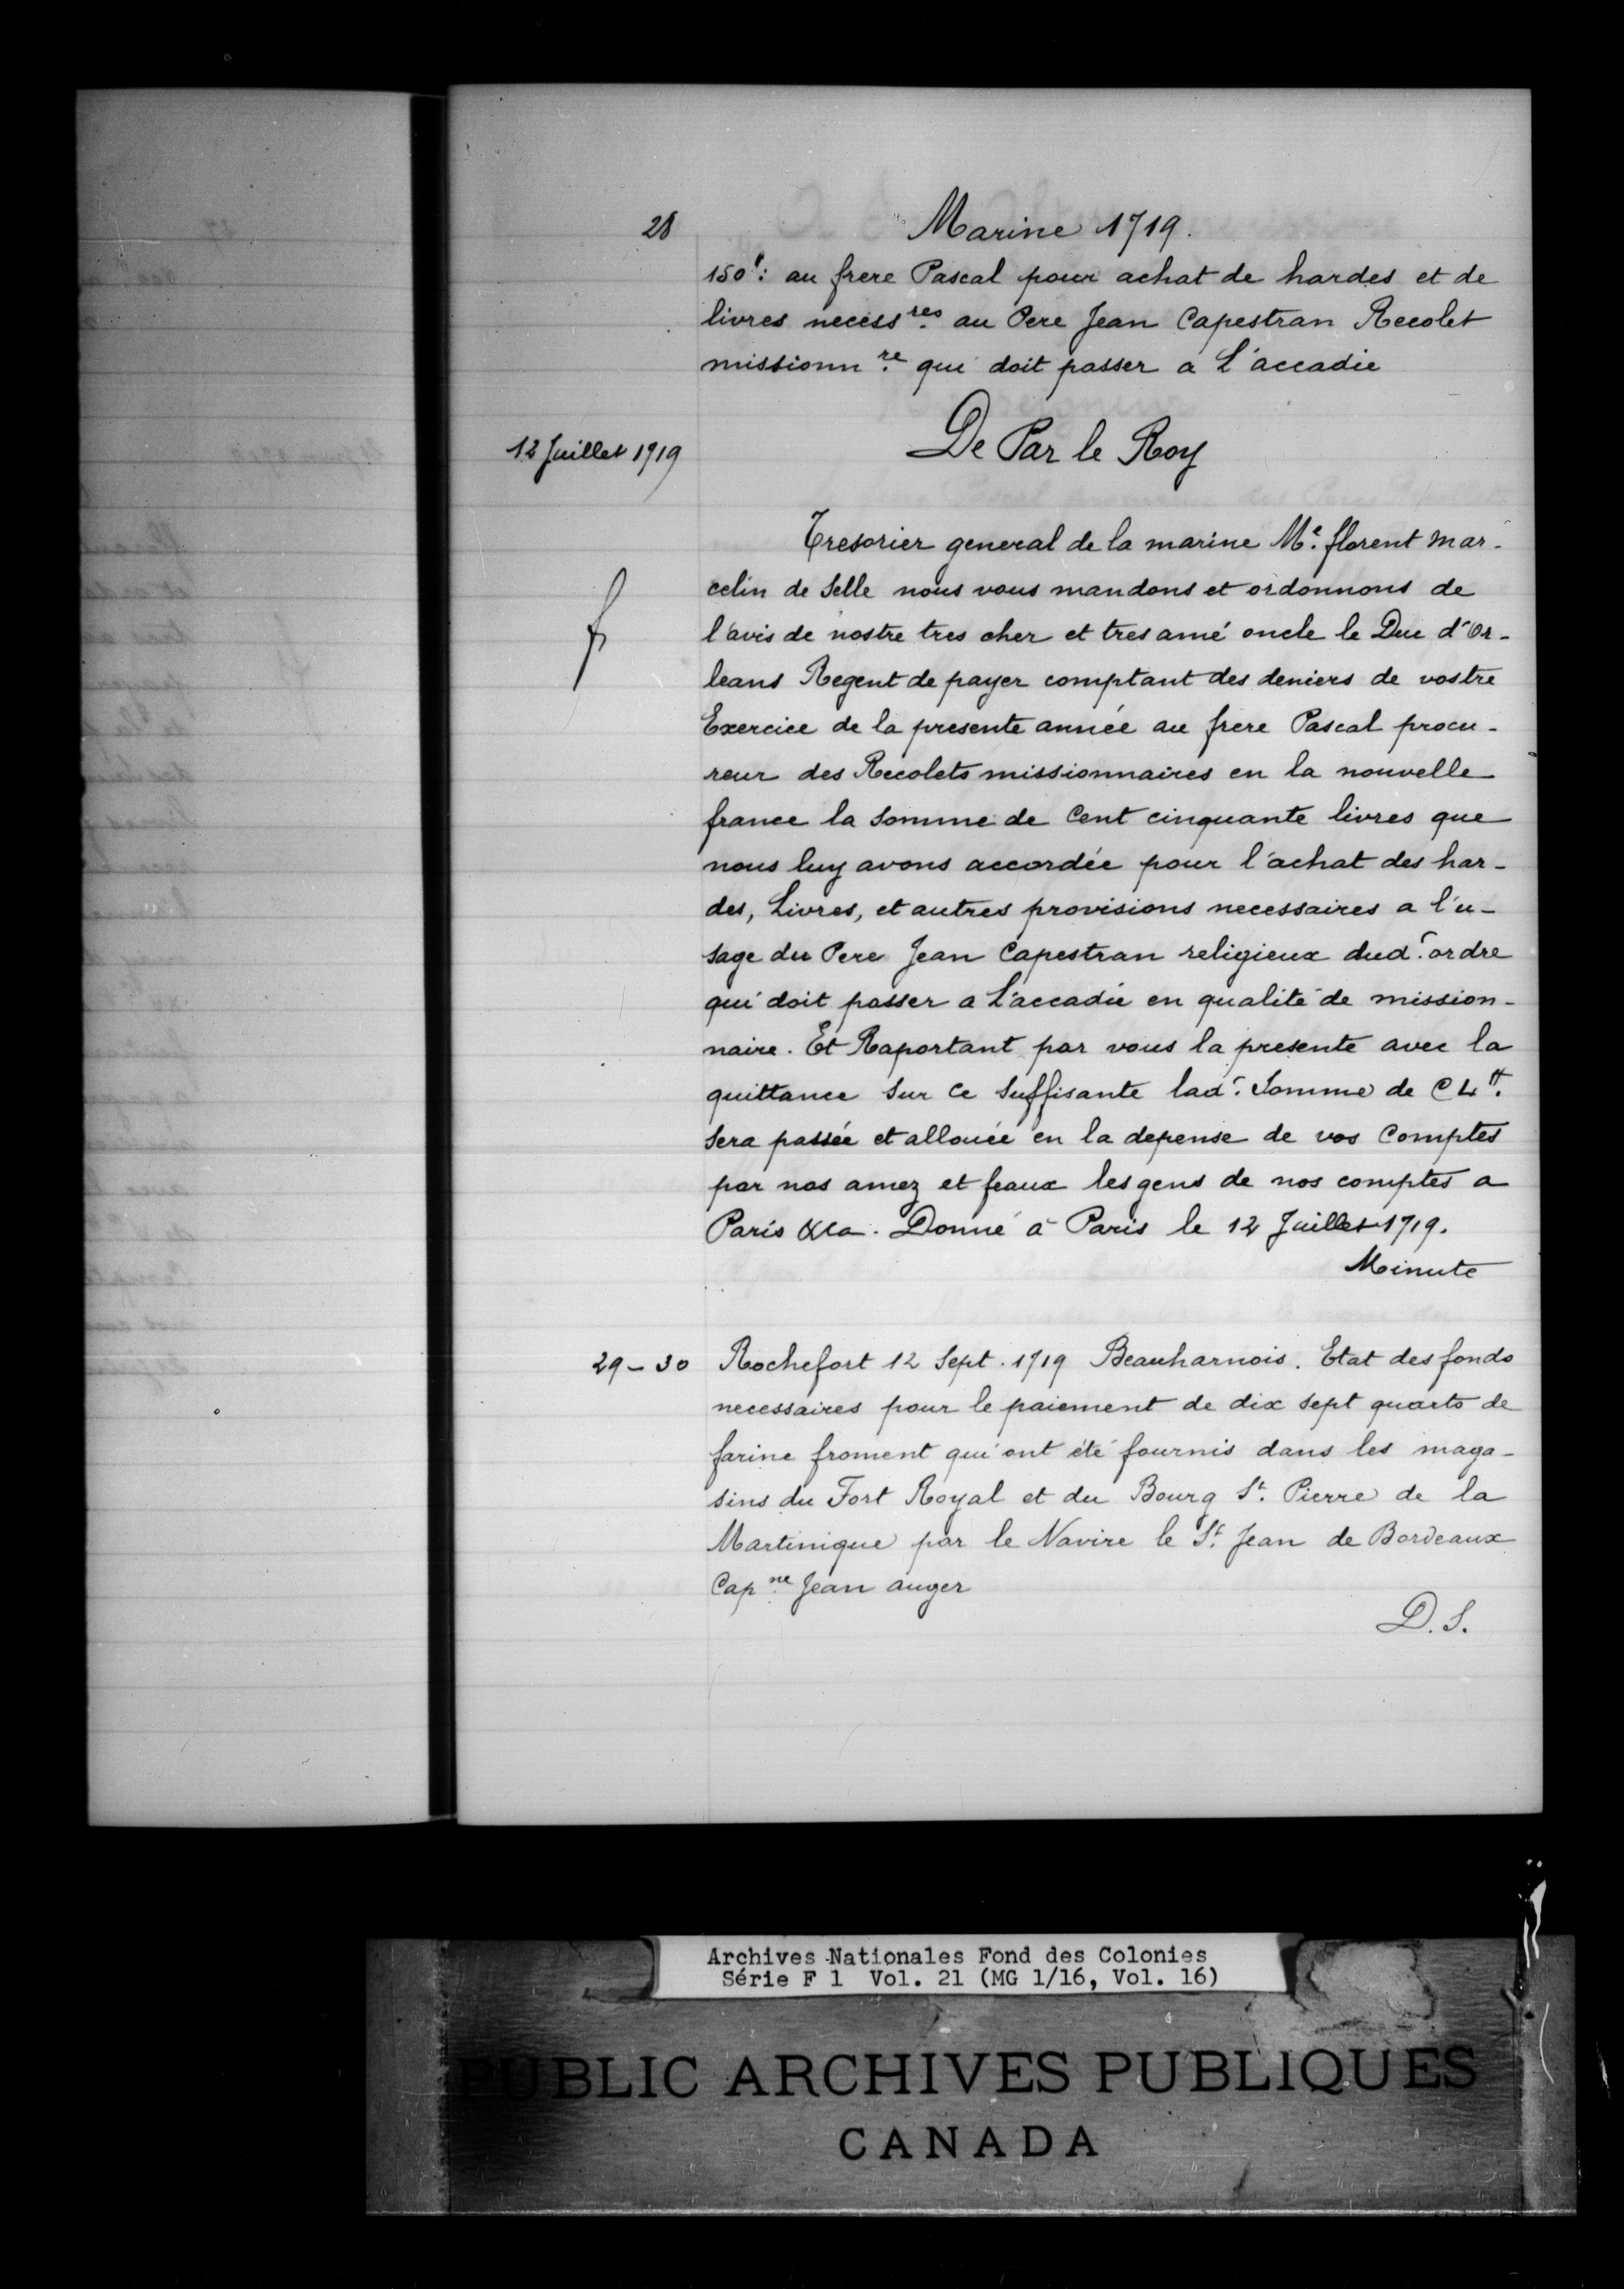 28
Marine 1719.
150ˡ: au frere Pascal pour achat de hardes et de
livres necess.res au Pere Jean Capestran Recolet
missionn.re qui doit passer a L'accadie
12 Juillet 1719
De Par le Roy
Tresorier general de la marine Me. florent Mar-
celin de Selle nous vous mandons et ordonnons de
l'avis de nostre tres cher et tres amé oncle le Duc d'Or-
leans Regent de payer comptant des deniers de vostre
Exercice de la presente année au frere Pascal procu-
reur des Recolets missionnaires en la nouvelle
france la Somme de Cent cinquante livres que
nous luy avons accordée pour l'achat des har-
des, Livres, et autres provisions necessaires a l'u-
sage du Pere Jean Capestran religieux dud. ordre
qui doit passer a L'accadie en qualité de mission-
naire. Et Raportant par vous la presente avec la
quittance Sur ce Suffisante lad. Somme de CL tt.
Sera passée et allouée en la depense de vos Comptes
par nos amez et feaux les gens de nos comptes a
Paris &ca. Donné à Paris le 12 Juillet 1719.
Minute
29-30 Rochefort 12 Sept. 1719 Beauharnois. Etat des fonds
necessaires pour le paiement de dix sept quarts de
farine froment qui ont été fournis dans les maga-
sins du Fort Royal et du Bourg St. Pierre de la
Martinique par le Navire le St. Jean de Bordeaux
Cap.ne Jean auger
D. S.
Archives Nationales Fond des Colonies
Série F 1 Vol. 21 (MG 1/16, Vol. 16)
PUBLIC ARCHIVES PUBLIQUES
CANADA